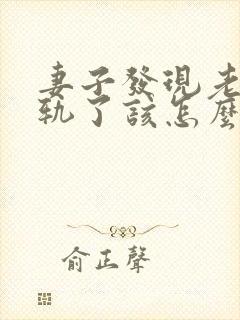 妻子發現老
軌了該怎麼
俞正聲